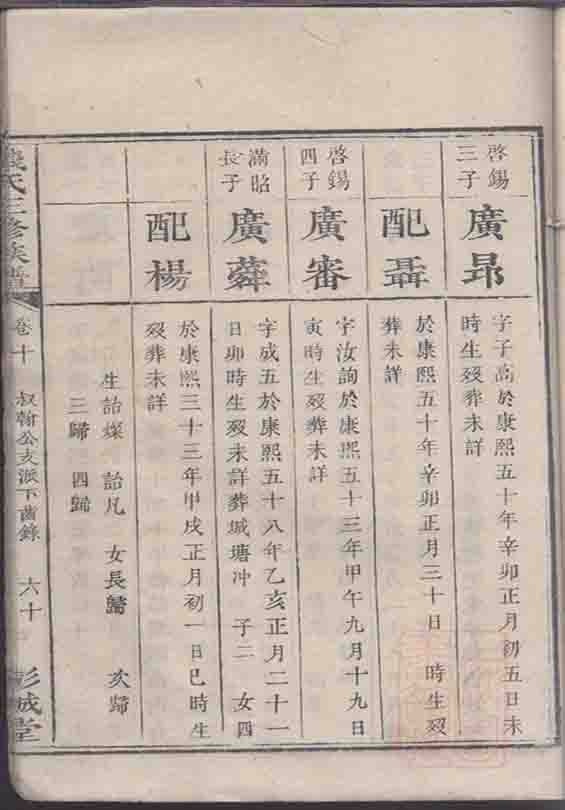 啓錫
三子
廣昴
字子高於康熙五十年辛卯正月初五日未
時生歿葬未詳
配聶
於康熙五十年辛卯正月三十日 時生歿
葬未詳
啓錫
四子
廣審
字汝詢於康熙五十三年甲午九月十九日
寅時生歿葬未詳
滿昭
長子
廣蕣
字成五於康熙五十八年乙亥正月二十一
日卯時生歿未詳葬城塘冲 子二 女四
配楊
於康熙三十三年甲戌正月初一日巳時生
歿葬未詳
生詒燦 詒凡 女長歸 次歸
三歸 四歸
氏三修族譜
卷十
叔翰公支派下齒錄
六十
彭城堂